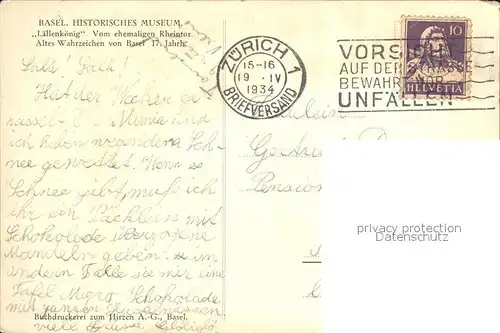 BASEL. HISTORISCHES MUSEUM.
„Lällenkönig“. Vom ehemaligen Rheintor.
Altes Wahrzeichen von Basel 17. Jahrh.
ZÜRICH 1
15-16
19.IV
1934
BRIEFVERSAND
VORSICHT
AUF DER STRASSE
BEWAHRT VOR
UNFÄLLEN
10
HELVETIA
Hat der Wecker ge-
rasselt? Mimia und
ich haben wegen Sch-
nee gewettet. Wenn es
Schnee gibt, muss ich
ihr ein Päcklein mit
Schokolade überzogene
Mandeln geben & im
andern Falle sie mir eine
Tafel Migro Schokolade
mit ganzen Haselnüssen
viele Grüsse
Fräulein
Pension
privacy protection
Datenschutz
Buchdruckerei zum Hirzen A.-G., Basel.